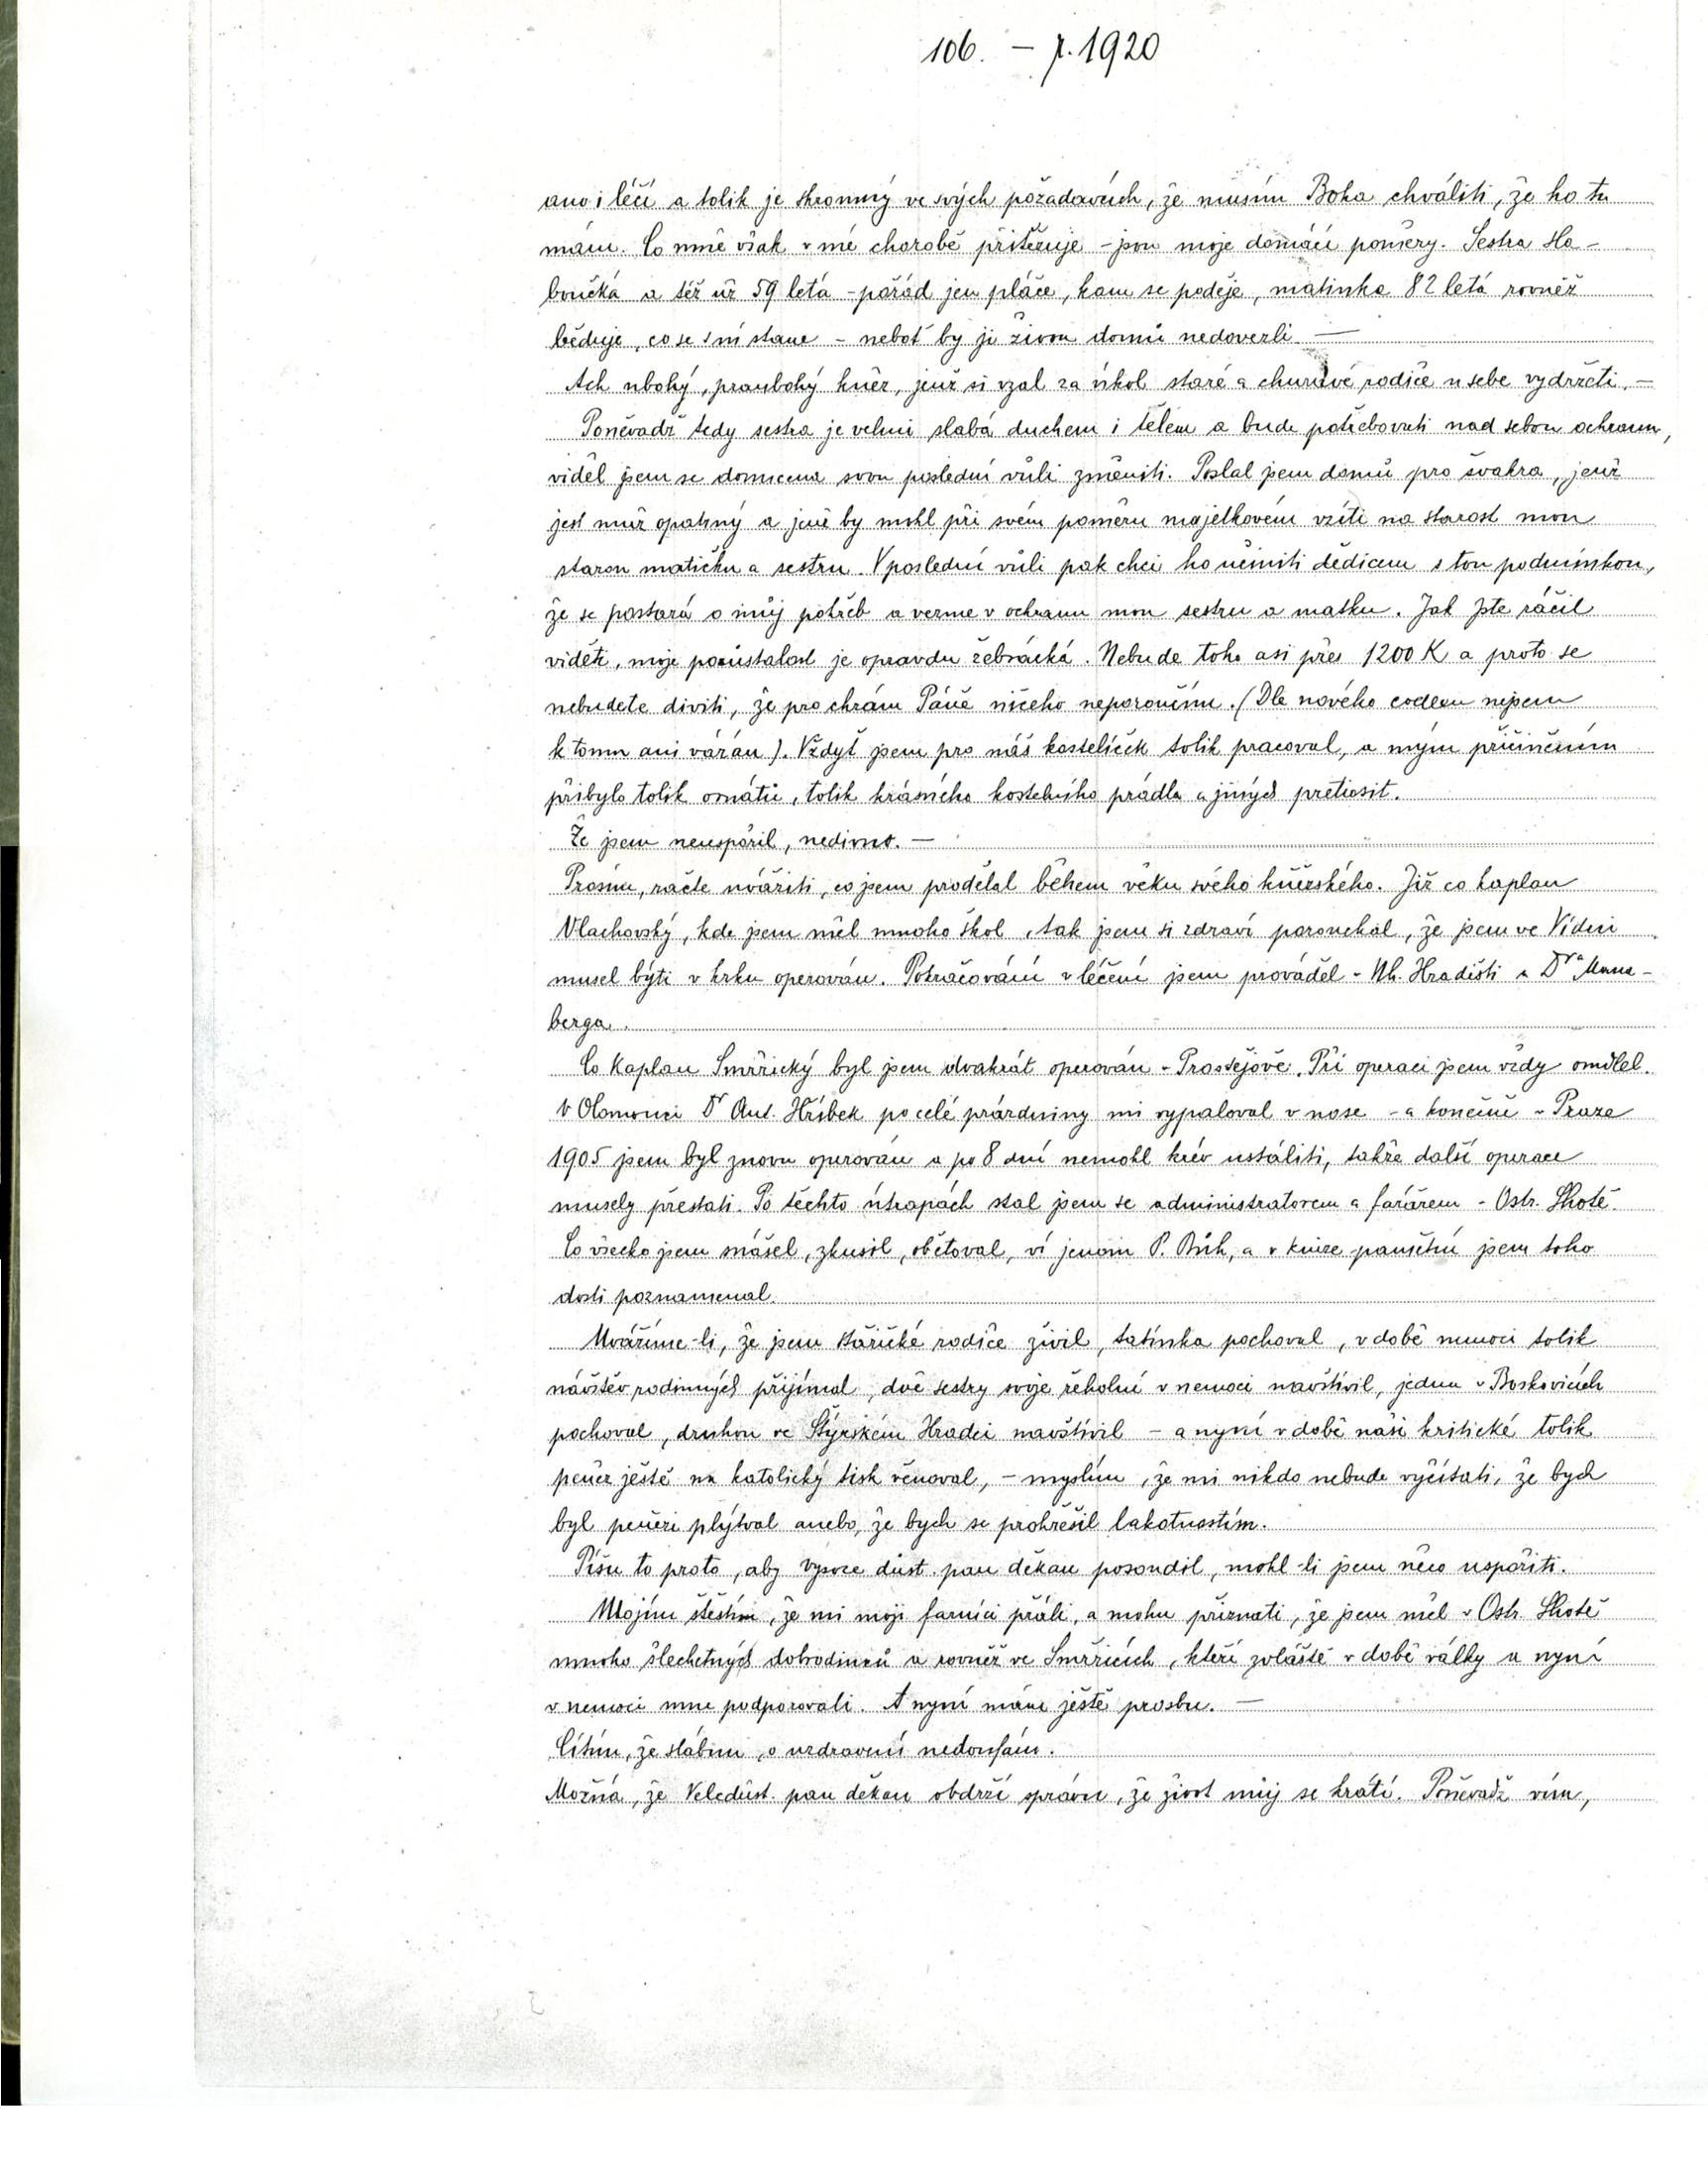 106. – r. 1920
ano i léčí a tolik je skromný ve svých požadavcích, že musím Boha chváliti, že ho tu
mám. Co mně však v mé chorobě přitěžuje – jsou moje domácí poměry. Sestra sla-
boučká a též už 59 letá – pořád jen pláče, kam se poděje, matinka 82 letá rovněž
běduje, co se s ní stane – neboť by ji živou domů nedovezli. —
Ach ubohý, praubohý kněz, jenž si vzal za úkol staré a churavé rodiče u sebe vydržeti. —
Poněvadž tedy sestra je velmi slabá duchem i tělem a bude potřebovati nad sebou ochranu,
viděl jsem se donucena svou poslední vůli změniti. Poslal jsem domů pro švakra, jenž
jest muž opatrný a jenž by mohl při svém poměru majetkovém vzíti na starost mou
starou matičku a sestru. V poslední vůli pak chci ho učiniti dědicem s tou podmínkou,
že se postará o můj pohřeb a vezme v ochranu mou sestru a matku. Jak jste ráčil
viděti, moje pozůstalost je opravdu žebrácká. Nebude toho asi přes 1200 K a proto se
nebudete diviti, že pro chrám Páně ničeho neporoučím. (Dle nového codexu nejsem
k tomu ani vázán). Vždyť jsem pro náš kostelíček tolik pracoval, a mým přičiněním
přibylo tolik ornátů, tolik krásného kostelního prádla a jiných pretiosit.
Že jsem neuspořil, nedivno. —
Prosím, račte uvážiti, co jsem prodělal během věku svého kněžského. Již co kaplan
Vlachovský, kde jsem měl mnoho škol, tak jsem si zdraví porouchal, že jsem ve Vídni
musel býti v krku operován. Pokračování v léčení jsem prováděl v Uh. Hradišti u Dra Muna-
berga.
Co kaplan Smržický byl jsem dvakrát operován v Prostějově. Při operaci jsem vždy omdlel.
V Olomouci Dr Ant. Hříbek po celé prázdniny mi vypaloval v nose – a konečně v Praze
1905 jsem byl znovu operován a po 8 dní nemohl krév ustáliti, takže další operace
musely přestati. Po těchto útrapách stal jsem se administratorem a farářem v Ostr. Lhotě.
Co všecko jsem snášel, zkusil, obětoval, ví jenom P. Bůh, a v knize pamětní jsem toho
dosti poznamenal.
Uvážíme-li, že jsem stařičké rodiče živil, tatínka pochoval, v době nemoci tolik
návštěv rodinných přijímal, dvě sestry svoje řeholní v nemoci navštívil, jednu v Boskovicích
pochoval, druhou ve Štýrském Hradci navštívil – a nyní v době naší kritické tolik
peněz ještě na katolický tisk věnoval, – myslím, že mi nikdo nebude vyčítati, že bych
byl penězi plýtval anebo, že bych se prohřešil lakotností.
Píšu to proto, aby vysoce důst. pan děkan posoudil, mohl-li jsem něco uspořiti.
Mojím štěstím, že mi moji farníci přáli, a mohu přiznati, že jsem měl v Ostr. Lhotě
mnoho šlechetných dobrodinců a rovněž ve Smržicích, kteří zvláště v době války a nyní
v nemoci mne podporovali. A nyní mám ještě prosbu. —
Cítím, že slábnu, o uzdravení nedoufám.
Možná, že Veledůst. pan děkan obdrží zprávu, že život můj se krátí. Poněvadž vím,